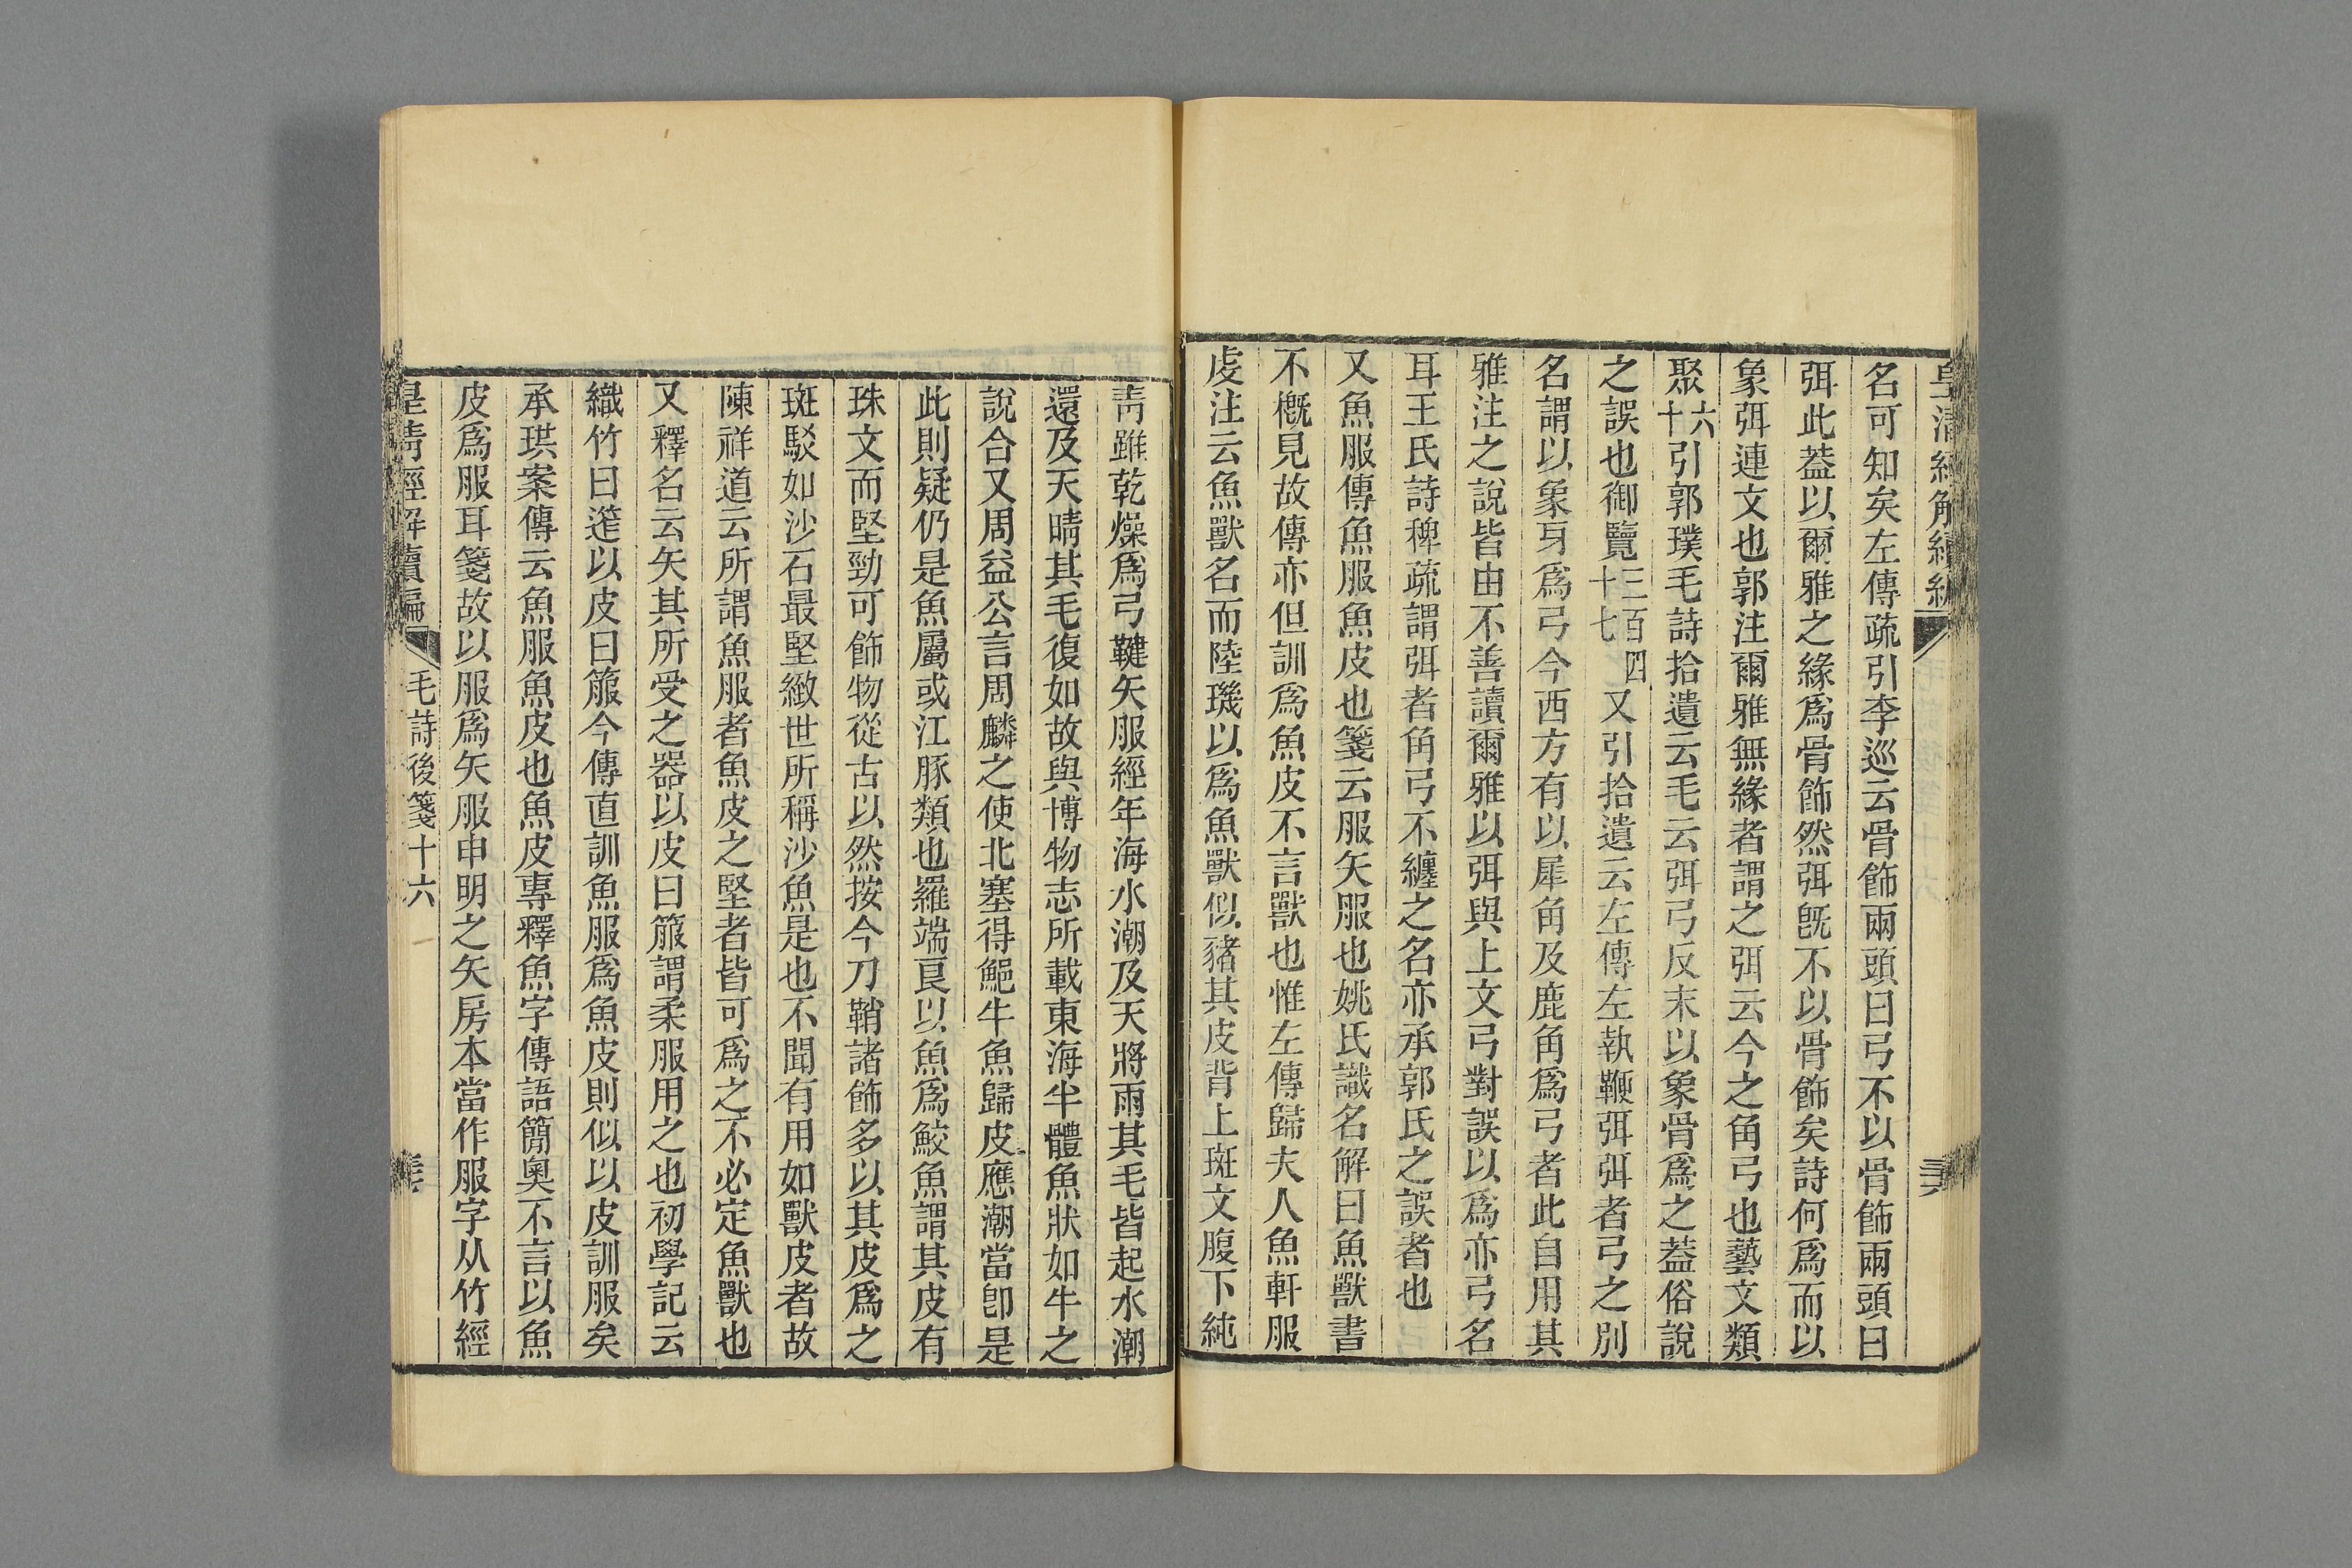 皇清經解續編
名可知矣左傳疏引李巡云骨飾兩頭曰弓不以骨飾兩頭曰
弭此葢以爾雅之緣爲骨飾然弭旣不以骨飾矣詩何爲而以
象弭連文也郭注爾雅無緣者謂之弭云今之角弓也藝文類
聚六十引郭璞毛詩拾遺云毛云弭弓反末以象骨爲之葢俗說
之誤也御覽三百四十七又引拾遺云左傳左執鞭弭弭者弓之別
名謂以象牙爲弓今西方有以犀角及鹿角爲弓者此自用其
雅注之說皆由不善讀爾雅以弭與上文弓對誤以爲亦弓名
耳王氏詩稗疏謂弭者角弓不纏之名亦承郭氏之誤者也
又魚服傳魚服魚皮也箋云服矢服也姚氏識名解曰魚獸書
不槪見故傳亦但訓爲魚皮不言獸也惟左傳歸夫人魚軒服
虔注云魚獸名而陸璣以爲魚獸似豬其皮背上斑文腹下純
靑雖乾燥爲弓鞬矢服經年海水潮及天將雨其毛皆起水潮
還及天晴其毛復如故與博物志所載東海半體魚狀如牛之
說合又周益公言周麟之使北塞得鮠牛魚歸皮應潮當卽是
此則疑仍是魚屬或江豚類也羅端良以魚爲鮫魚謂其皮有
珠文而堅勁可飾物從古以然按今刀鞘諸飾多以其皮爲之
斑駁如沙石最堅緻世所稱沙魚是也不聞有用如獸皮者故
陳祥道云所謂魚服者魚皮之堅者皆可爲之不必定魚獸也
又釋名云矢其所受之器以皮曰箙謂柔服用之也初學記云
織竹曰笮以皮曰箙今傳直訓魚服爲魚皮則似以皮訓服矣
承珙案傳云魚服魚皮也魚皮專釋魚字傳語簡奧不言以魚
皮爲服耳箋故以服爲矢服申明之矢房本當作服字从竹經
皇清經解續編 毛詩後箋十六